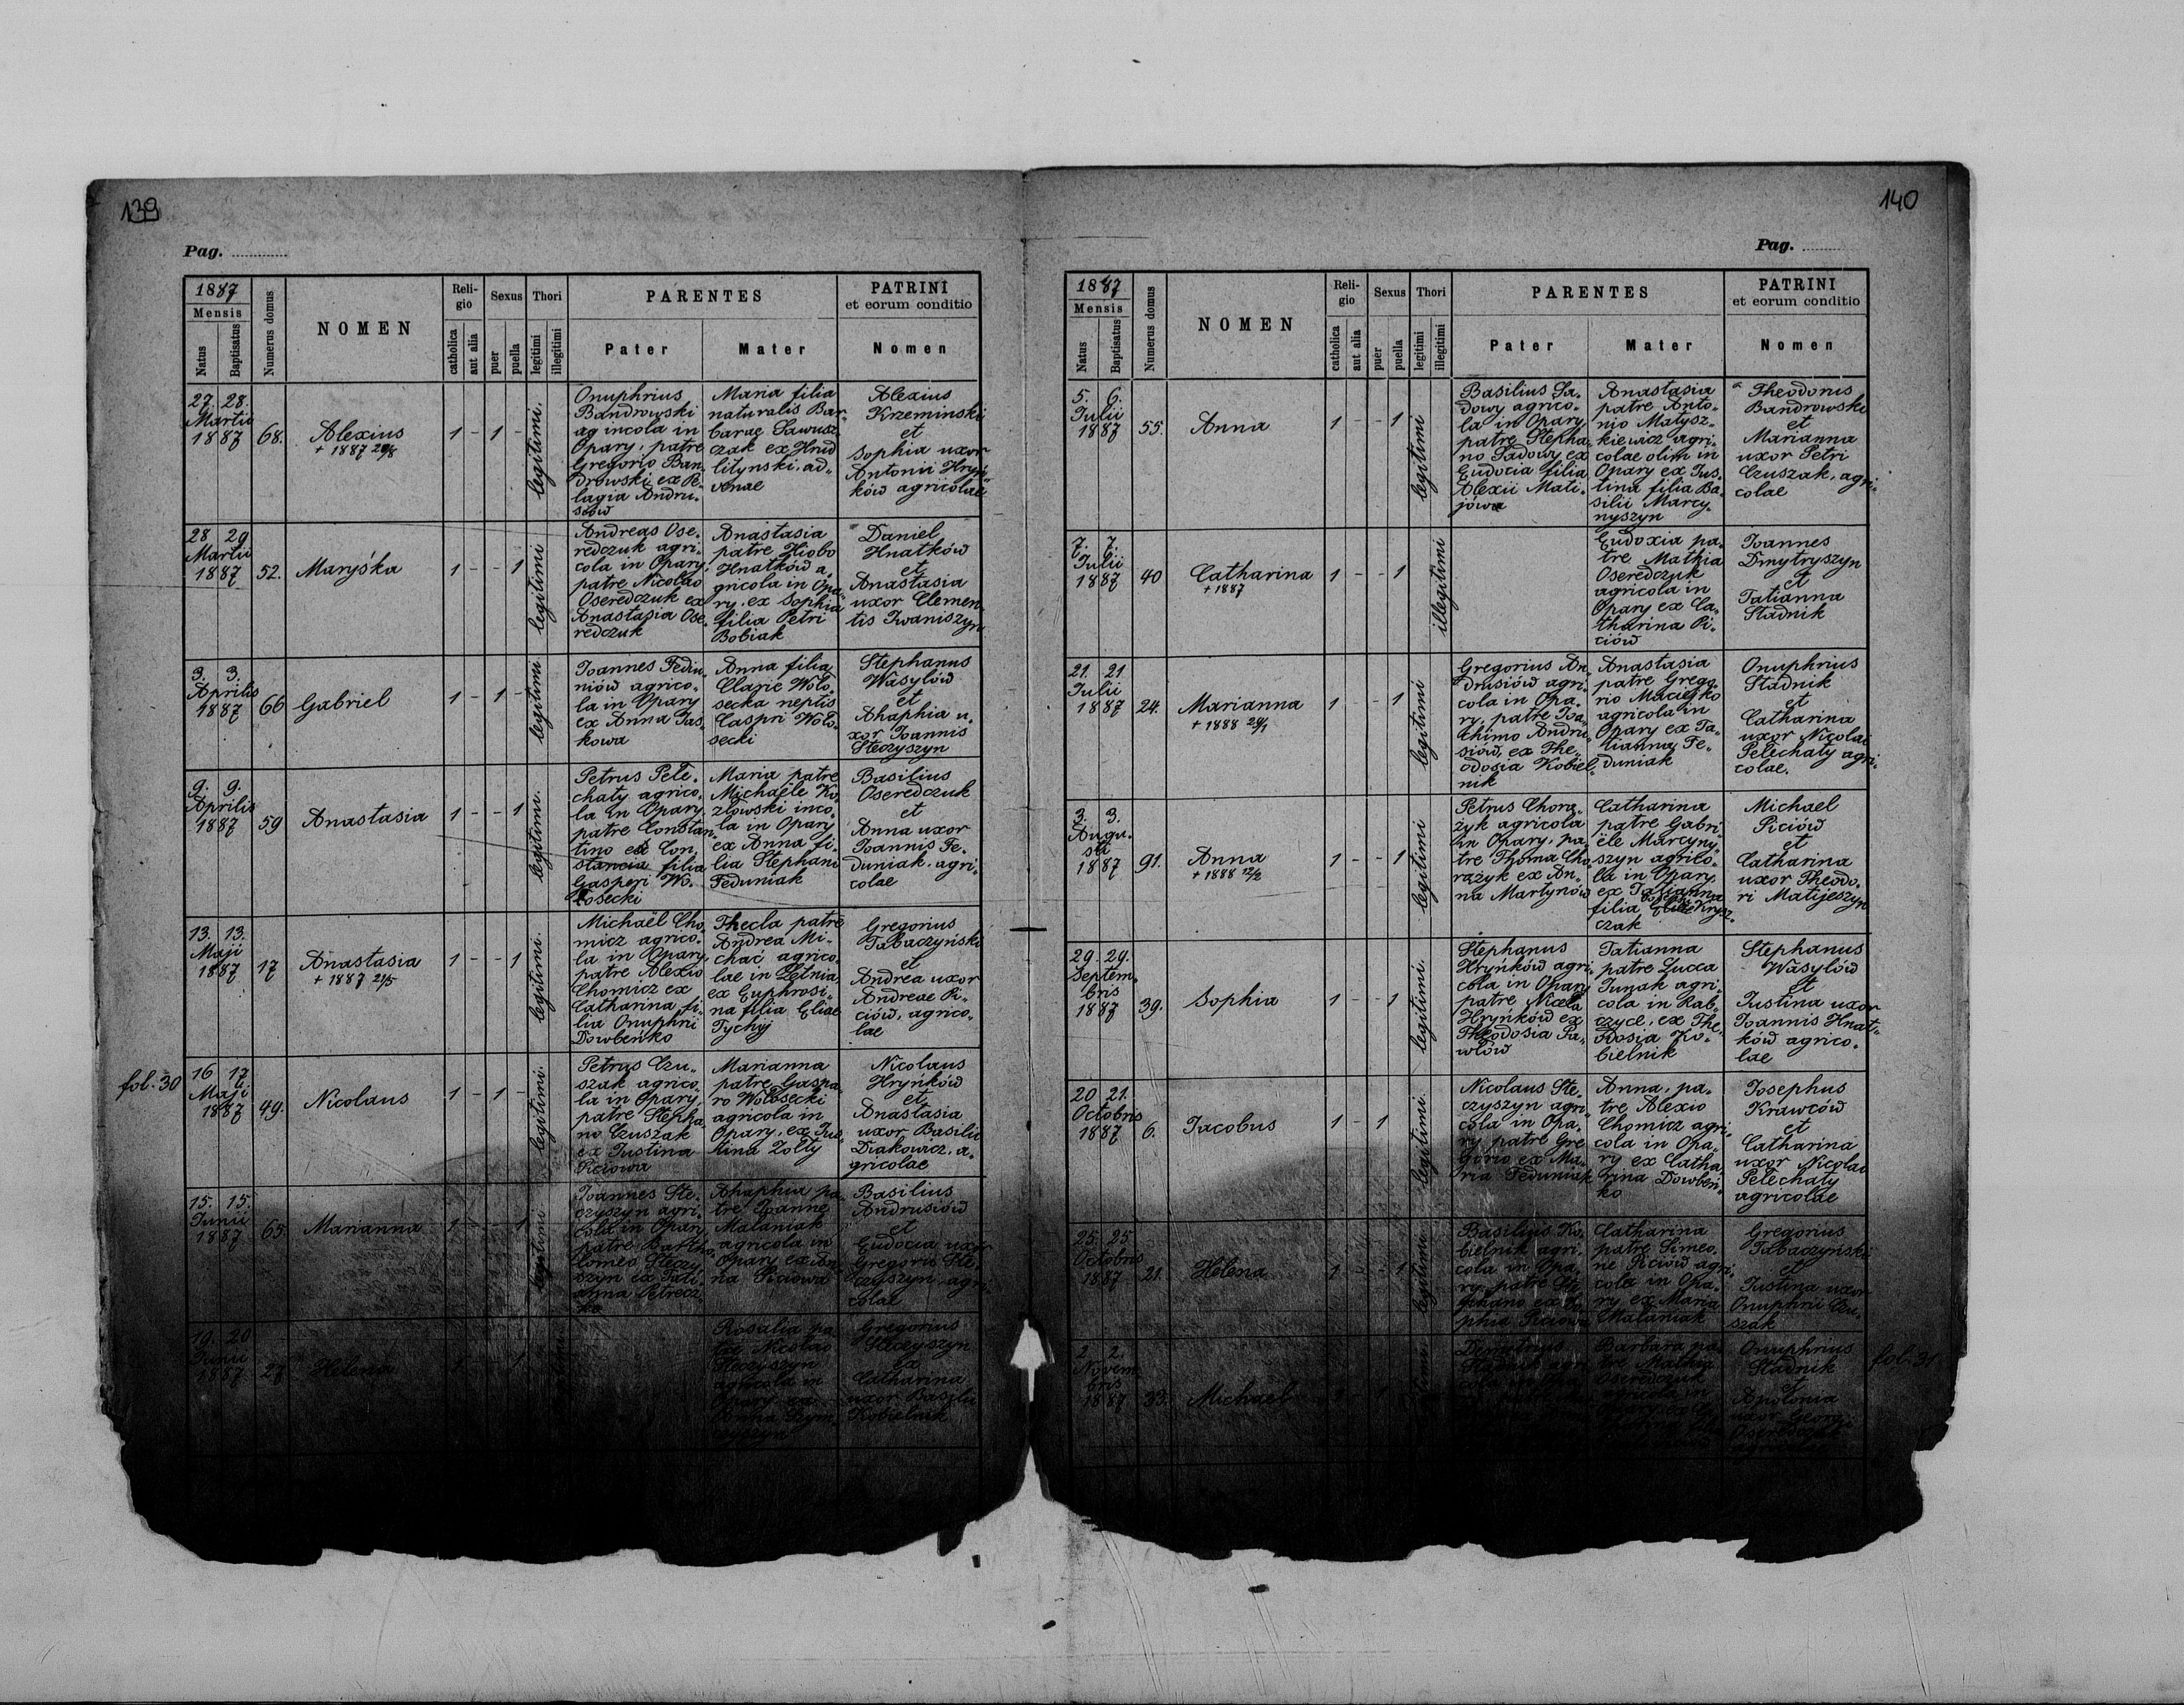 139
Pag. ............
1887
Mensis
Natus
Baptisatus
Numerus domus
NOMEN
Reli-
gio
catholica
aut alia
Sexus
puer
puella
Thori
legitimi
illegitimi
PARENTES
Pater
Mater
PATRINI
et eorum conditio
Nomen
27. 28.
Martii
1887
68.
Alexius
+ 1887 29/8
1 - 1 -
legitimi.
Onuphrius
Bandrowski
ag incola in
Opary, patre
Gregorio Ban„
drowski ex Pe„
lagia Andru„
siów
Maria filia
naturalis Bar„
barae Sawusz„
czak ex Hrud
litynski, ad„
venae
Alexius
Krzeminski
et
Sophia uxor
Antonii Hryń„
ków agricolae
28 29
Martii
1887
52.
Maryśka
1 - - 1
legitimi
Andreas Ose„
redczuk agri„
cola in Opary,
patre Nicolao
Oseredczuk ex
Anastasia Ose„
redczuk
Anastasia
patre Hiobo
Hnatków a„
gricola in Opa„
ry, ex Sophia
filia Petri
Bobiak
Daniel
Hnatków
et
Anastasia
uxor Clemen„
tis Iwaniszyn
3. 3.
Aprilis
1887
66
Gabriel
1 - 1 -
legitimi.
Joannes Fedu„
niów agrico„
la in Opary
ex Anna Jas„
kowa
Anna filia
Clarie Woło„
secka neptis
Caspri Woło„
secki
Stephanus
Wasylów
et
Ahaphia u„
xor Joannis
Steczyszyn
9. 9.
Aprilis
1887
59
Anastasia
1 - - 1
legitimi.
Petrus Pele„
chaty agrico„
la in Opary,
patre Constan„
tino ex Con„
stancia filia
Gasperi Wo„
łosecki
Maria patre
Michaele Ko„
złowski inco„
la in Opary
ex Anna fi„
lia Stephani
Feduniak
Basilius
Oseredczuk
et
Anna uxor
Joannis Fe„
duniak, agri„
colae
13. 13.
Maji
1887
17
Anastasia
+ 1887 21/5
1 - - 1
legitimi.
Michaël Cho„
micz agrico„
la in Opary,
patre Alexio
Chomicz ex
Catharina fi„
lia Onuphri
Dowbeńko
Thecla patre
Andrea Mi„
chać agrico„
lae in Letnia,
ex Euphrosi„
na filia Eliae
Tychyj
Gregorius
Tabaczyński
et
Andrea uxor
Andreae Pi„
ciów, agrico„
lae
fol. 30
16 17
Maji
1887
49.
Nicolaus
1 - 1 -
legitimi.
Petrus Czu„
szak agrico„
la in Opary,
patre Stepha„
no Czuszak
ex Justina
Piciowa
Marianna
patre Gaspa„
ro Wołosecki
agricola in
Opary, ex Jus„
tina Zolty
Nicolaus
Hryńków
et
Anastasia
uxor Basilii
Diakowicz, a„
gricolae
15. 15.
Junii
1887
65.
Marianna
1 - - 1
legitimi
Joannes Ste„
czyszyn agri„
cola in Opary
patre Bartho„
lomeo Steczy„
szyn ex Tati„
anna Petrecz„
ko
Ahaphia pa„
tre Joanne
Malaniak
agricola in
Opary ex An„
na Piciowa
Basilius
Andrusiów
et
Eudocia uxor
Gregorii Ste„
czyszyn, agri„
colae
19. 20
Junii
1887
27
Helena
1 - - 1
Rosalia pa„
tre Nicolao
Steczyszyn
agricola in
Opary ex
Anna
Gregorius
Steczyszyn
et
Catharina
uxor Basilii
Kobielnik
140
Pag. ............
1887
Mensis
Natus
Baptisatus
Numerus domus
NOMEN
Reli-
gio
catholica
aut alia
Sexus
puer
puella
Thori
legitimi
illegitimi
PARENTES
Pater
Mater
PATRINI
et eorum conditio
Nomen
5. 6.
Julii
1887
55.
Anna
1 - - 1
legitimi
Basilius Sa„
dowy agrico„
la in Opary
patre Stepha„
no Sadowy ex
Eudocia filia
Alexii Mati„
jowa
Anastasia
patre Anto„
nio Matysz„
kiewicz agri„
colae olim in
Opary ex Jus„
tina filia Ba„
silii Marcy„
nyszyn
Theodorus
Bandrowski
et
Marianna
uxor Petri
Czuszak, agri„
colae
7. 7.
Julii
1887
40
Catharina
+ 1887
1 - - 1
illegitimi
Eudoxia pa„
tre Mathia
Oseredczuk
agricola in
Opary ex Ca„
tharina Pi„
ciów
Joannes
Dmytryszyn
et
Tatianna
Stadnik
21. 21
Julii
1887
24.
Marianna
+ 1888 29/1
1 - - 1
legitimi
Gregorius An„
drusiów agri„
cola in Opa„
ry, patre Joa„
chimo Andru„
siów, ex The„
odosia Kobiel„
nik
Anastasia
patre Grego„
rio Maciejko
agricola in
Opary ex Ta„
tianna Fe„
duniak
Onuphrius
Stadnik
et
Catharina
uxor Nicolai
Pelechaty agri„
colae.
3. 3.
Augu„
sti
1887
91.
Anna
+ 1888 12/2
1 - - 1
legitimi
Petrus Chora„
żyk agricola
in Opary, pa„
tre Thoma Cho„
rążyk ex An„
na Martynów
Catharina
patre Gabri„
ële Marcyny„
szyn agrico„
la in Opary
ex Tatianna
filia
czak
Michael
Piciów
et
Catharina
uxor Theodo„
ri Matijeszyn
29. 29.
Septem„
bris
1887
39.
Sophia
1 - - 1
legitimi.
Stephanus
Hryńków agri„
cola in Opary
patre Niceta
Hryńków ex
Theodosia Pa„
włów
Tatianna
patre Lucca
Junak agri„
cola in Rab„
czyce, ex The„
odosia Ko„
bielnik
Stephanus
Wasylów
et
Justina uxor
Joannis Hnat„
ków agrico„
lae
20 21.
Octobris
1887
6.
Jacobus
1 - 1
legitimi.
Nicolaus Ste„
czyszyn agri„
cola in Opa„
ry patre Gre„
gorio ex Ma„
ria Feduniak
Anna, pa„
tre Alexio
Chomicz agri„
cola in Opa„
ry ex Catha„
rina Dowbeń„
ko
Josephus
Krawców
et
Catharina
uxor Nicolai
Pelechaty
agricolae
25. 25.
Octobris
1887
21.
Helena
1 - - 1
legitimi
Basilius Ko„
bielnik agri„
cola in Opa„
ry patre Ste„
phano ex So„
phia Piciowa
Catharina
patre Simeo„
ne Piciów agri„
cola in Opa„
ry ex Maria
Malaniak
Gregorius
Tabaczyński
et
Justina uxor
Onuphrii Czu„
szak
2. 2.
Novem„
bris
1887
33.
Michael
Demetrius
Stadnik agri„
Barbara pa„
tre Mathia
Oseredczuk
agricola in
Onuphrius
Stadnik
et
Apolonia
uxor Georgii
Oseredczuk
fol. 31